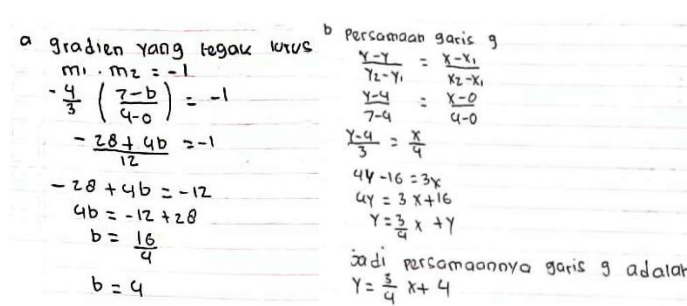 a gradien yang tegak lurus
m1 . m2 = -1
-4/3 (7-b / 4-0) = -1
-28 + 4b / 12 = -1
-28 + 4b = -12
4b = -12 + 28
b = 16/4
b = 4
b Persamaan garis g
Y-Y / Y2-Y1 = X-X1 / X2-X1
Y-4 / 7-4 = X-0 / 4-0
Y-4 / 3 = X / 4
4Y - 16 = 3X
4Y = 3X + 16
Y = 3/4 X + Y
Jadi persamaannya garis g adalah
Y = 3/4 X + 4